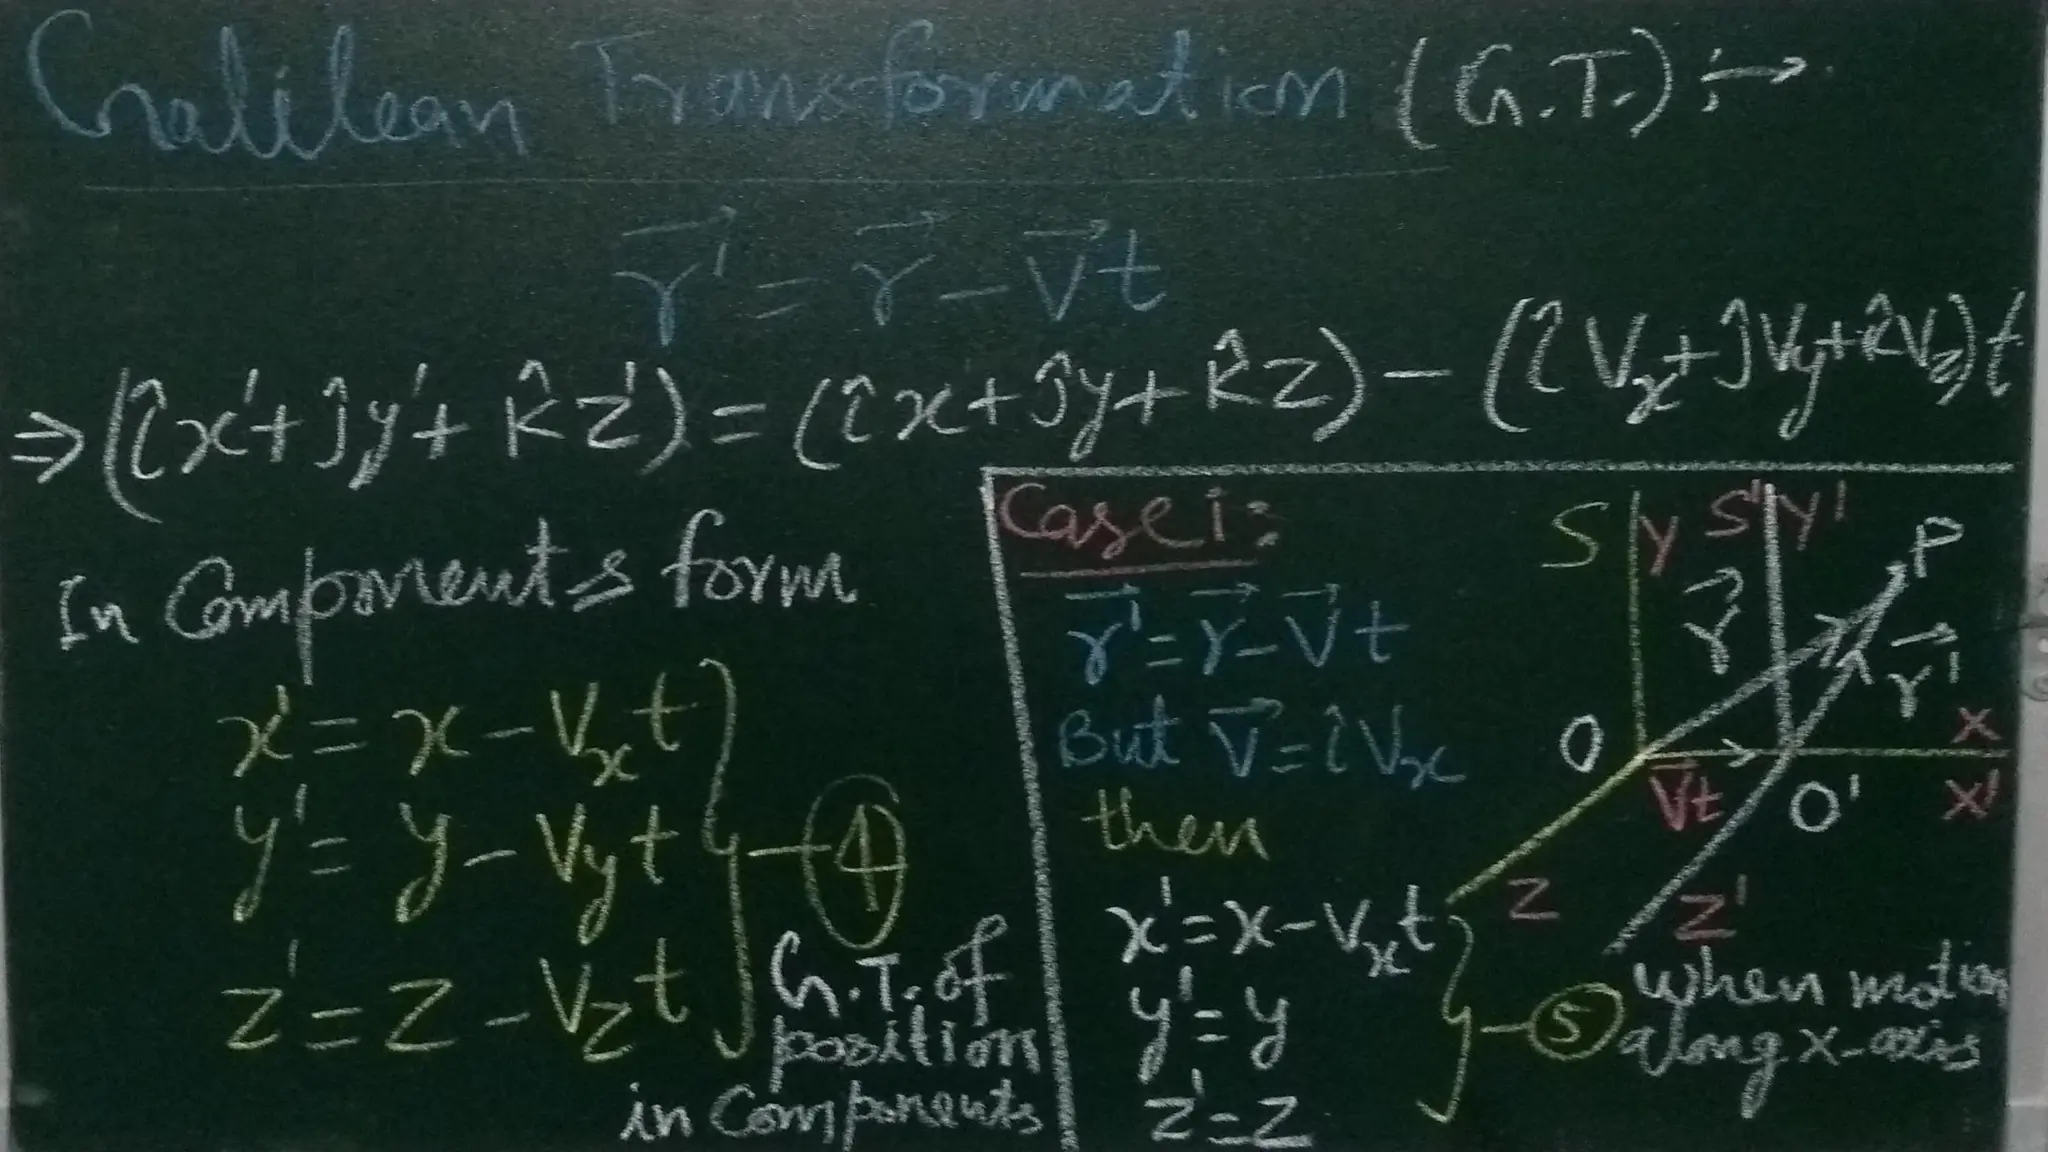 Galilean Transformation (G.T.) :→
r⃗' = r⃗ - v⃗t
⇒ (îx' + ĵy' + k̂z') = (îx + ĵy + k̂z) - (îVx + ĵVy + k̂Vz)t
In Components form
x' = x - Vxt
y' = y - Vyt
z' = z - Vzt
④
G.T. of
position
in Components
Case i:
r⃗' = r⃗ - V⃗t
But V⃗ = îVx
then
x' = x - Vxt
y' = y
z' = z
⑤
when motion
along x-axis
S Y S' Y' P
r⃗ r⃗'
O X
V⃗t O' X'
Z Z'